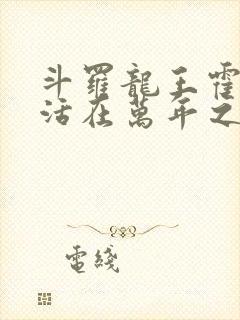 斗羅龍王霍
活在萬年之
電綫